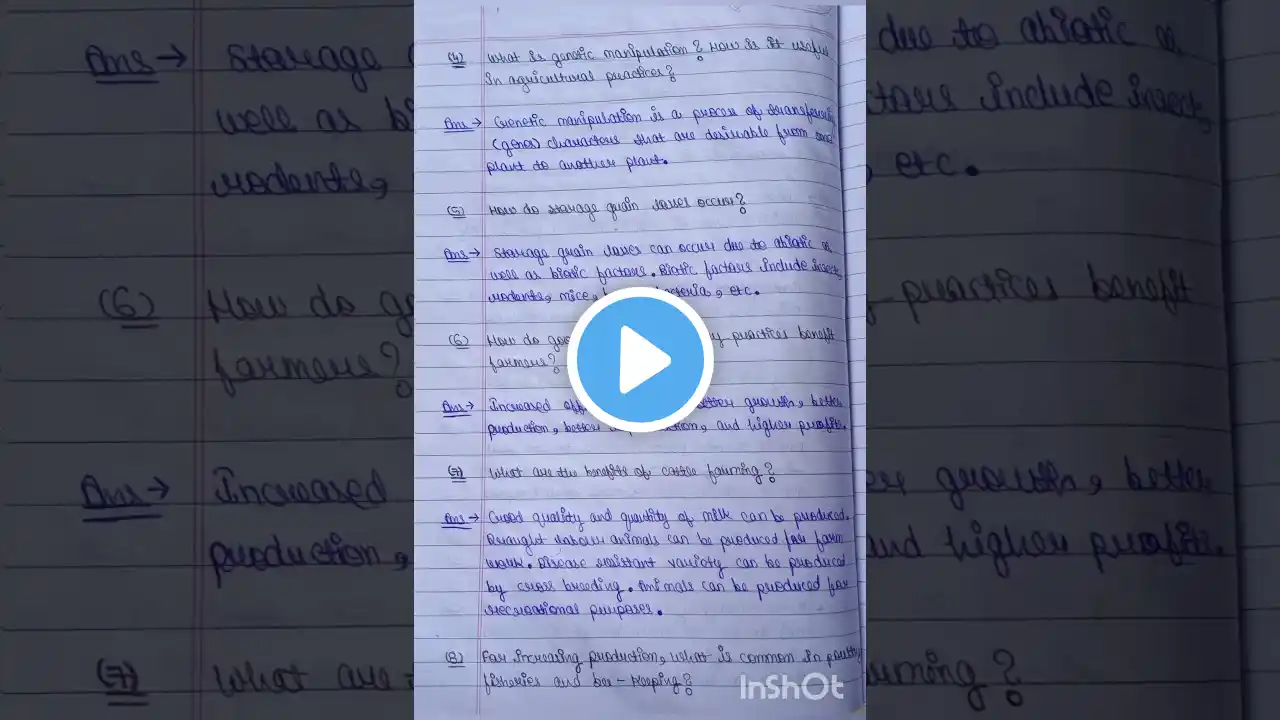 (4) What is genetic manipulation? How is it useful
in agricultural practices?
Ans → Genetic manipulation is a process of transferring
(genes) characters that are desirable from one
plant to another plant.
(5) How do storage grain losses occur?
Ans → Storage grain losses can occur due to abiotic as
well as biotic factors. Biotic factors include insects,
rodents, mice, bacteria, etc.
(6) How do practices benefit
farmers?
Ans → Increased better growth, better
production, better and higher profits.
(7) What are the benefits of cattle farming?
Ans → Good quality and quantity of milk can be produced.
Draught labour animals can be produced for farm
work. Disease resistant variety can be produced
by cross breeding. Animals can be produced for
recreational purposes.
(8) For increasing production, what is common in poultry
fisheries and bee-keeping?
InShOt